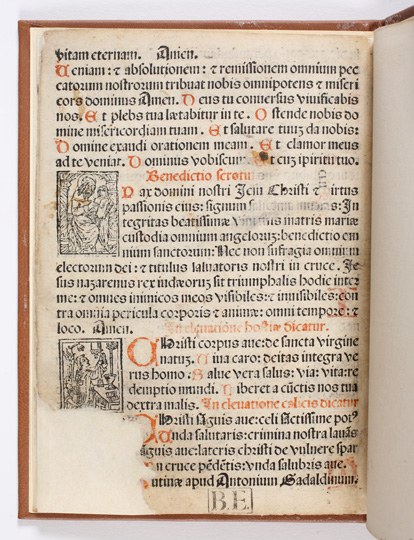 vitam eternam. Amen.
Veniam: ⁊ absolutionem: ⁊ remissionem omnium pec
catorum nostrorum tribuat nobis omnipotens ⁊ miseri
cors dominus Amen. Deus tu conversus vivificabis
nos. Et plebs tua lætabitur in te. Ostende nobis do
mine misericordiam tuam. Et salutare tuuʒ da nobis:
Domine exaudi orationem meam. Et clamor meus
ad te veniat. Dominus vobiscum. Et cuʒ spiritu tuo.
Benedictio serotina
Pax domini nostri Jesu Christi ⁊ virtus
passionis eius: signum crucis: In
tegritas beatissimæ virginis matris mariæ
custodia omnium angelorum: benedictio om
nium sanctorum: Nec non suffragia omnium
electorum dei: ⁊ titulus salvatoris nostri in cruce. Je
sus nazarenus rex iudæorum sit triumphalis hodie inter
me: ⁊ omnes inimicos meos visibiles: ⁊ invisibiles: con
tra omnia pericula corporis ⁊ animæ: omni tempore: ⁊
loco. Amen. In elevatione hostiæ dicatur.
Christi corpus ave: de sancta virgine
natuʒ. Viva caro: deitas integra ve
rus homo. Salve vera salus: via: vita: re
demptio mundi. Liberet a cũctis nos tua
dextra malis. In elevatione calicis dicatur
Christi sãguis ave: celi sãctissime pot⁹
Vnda salutaris: crimina nostra lavãs
sãguis ave: lateris christi de vulnere spar
in cruce pẽdẽtis: vnda salubris ave.
utinæ apud Antonium Gadaldinum.
B.E.